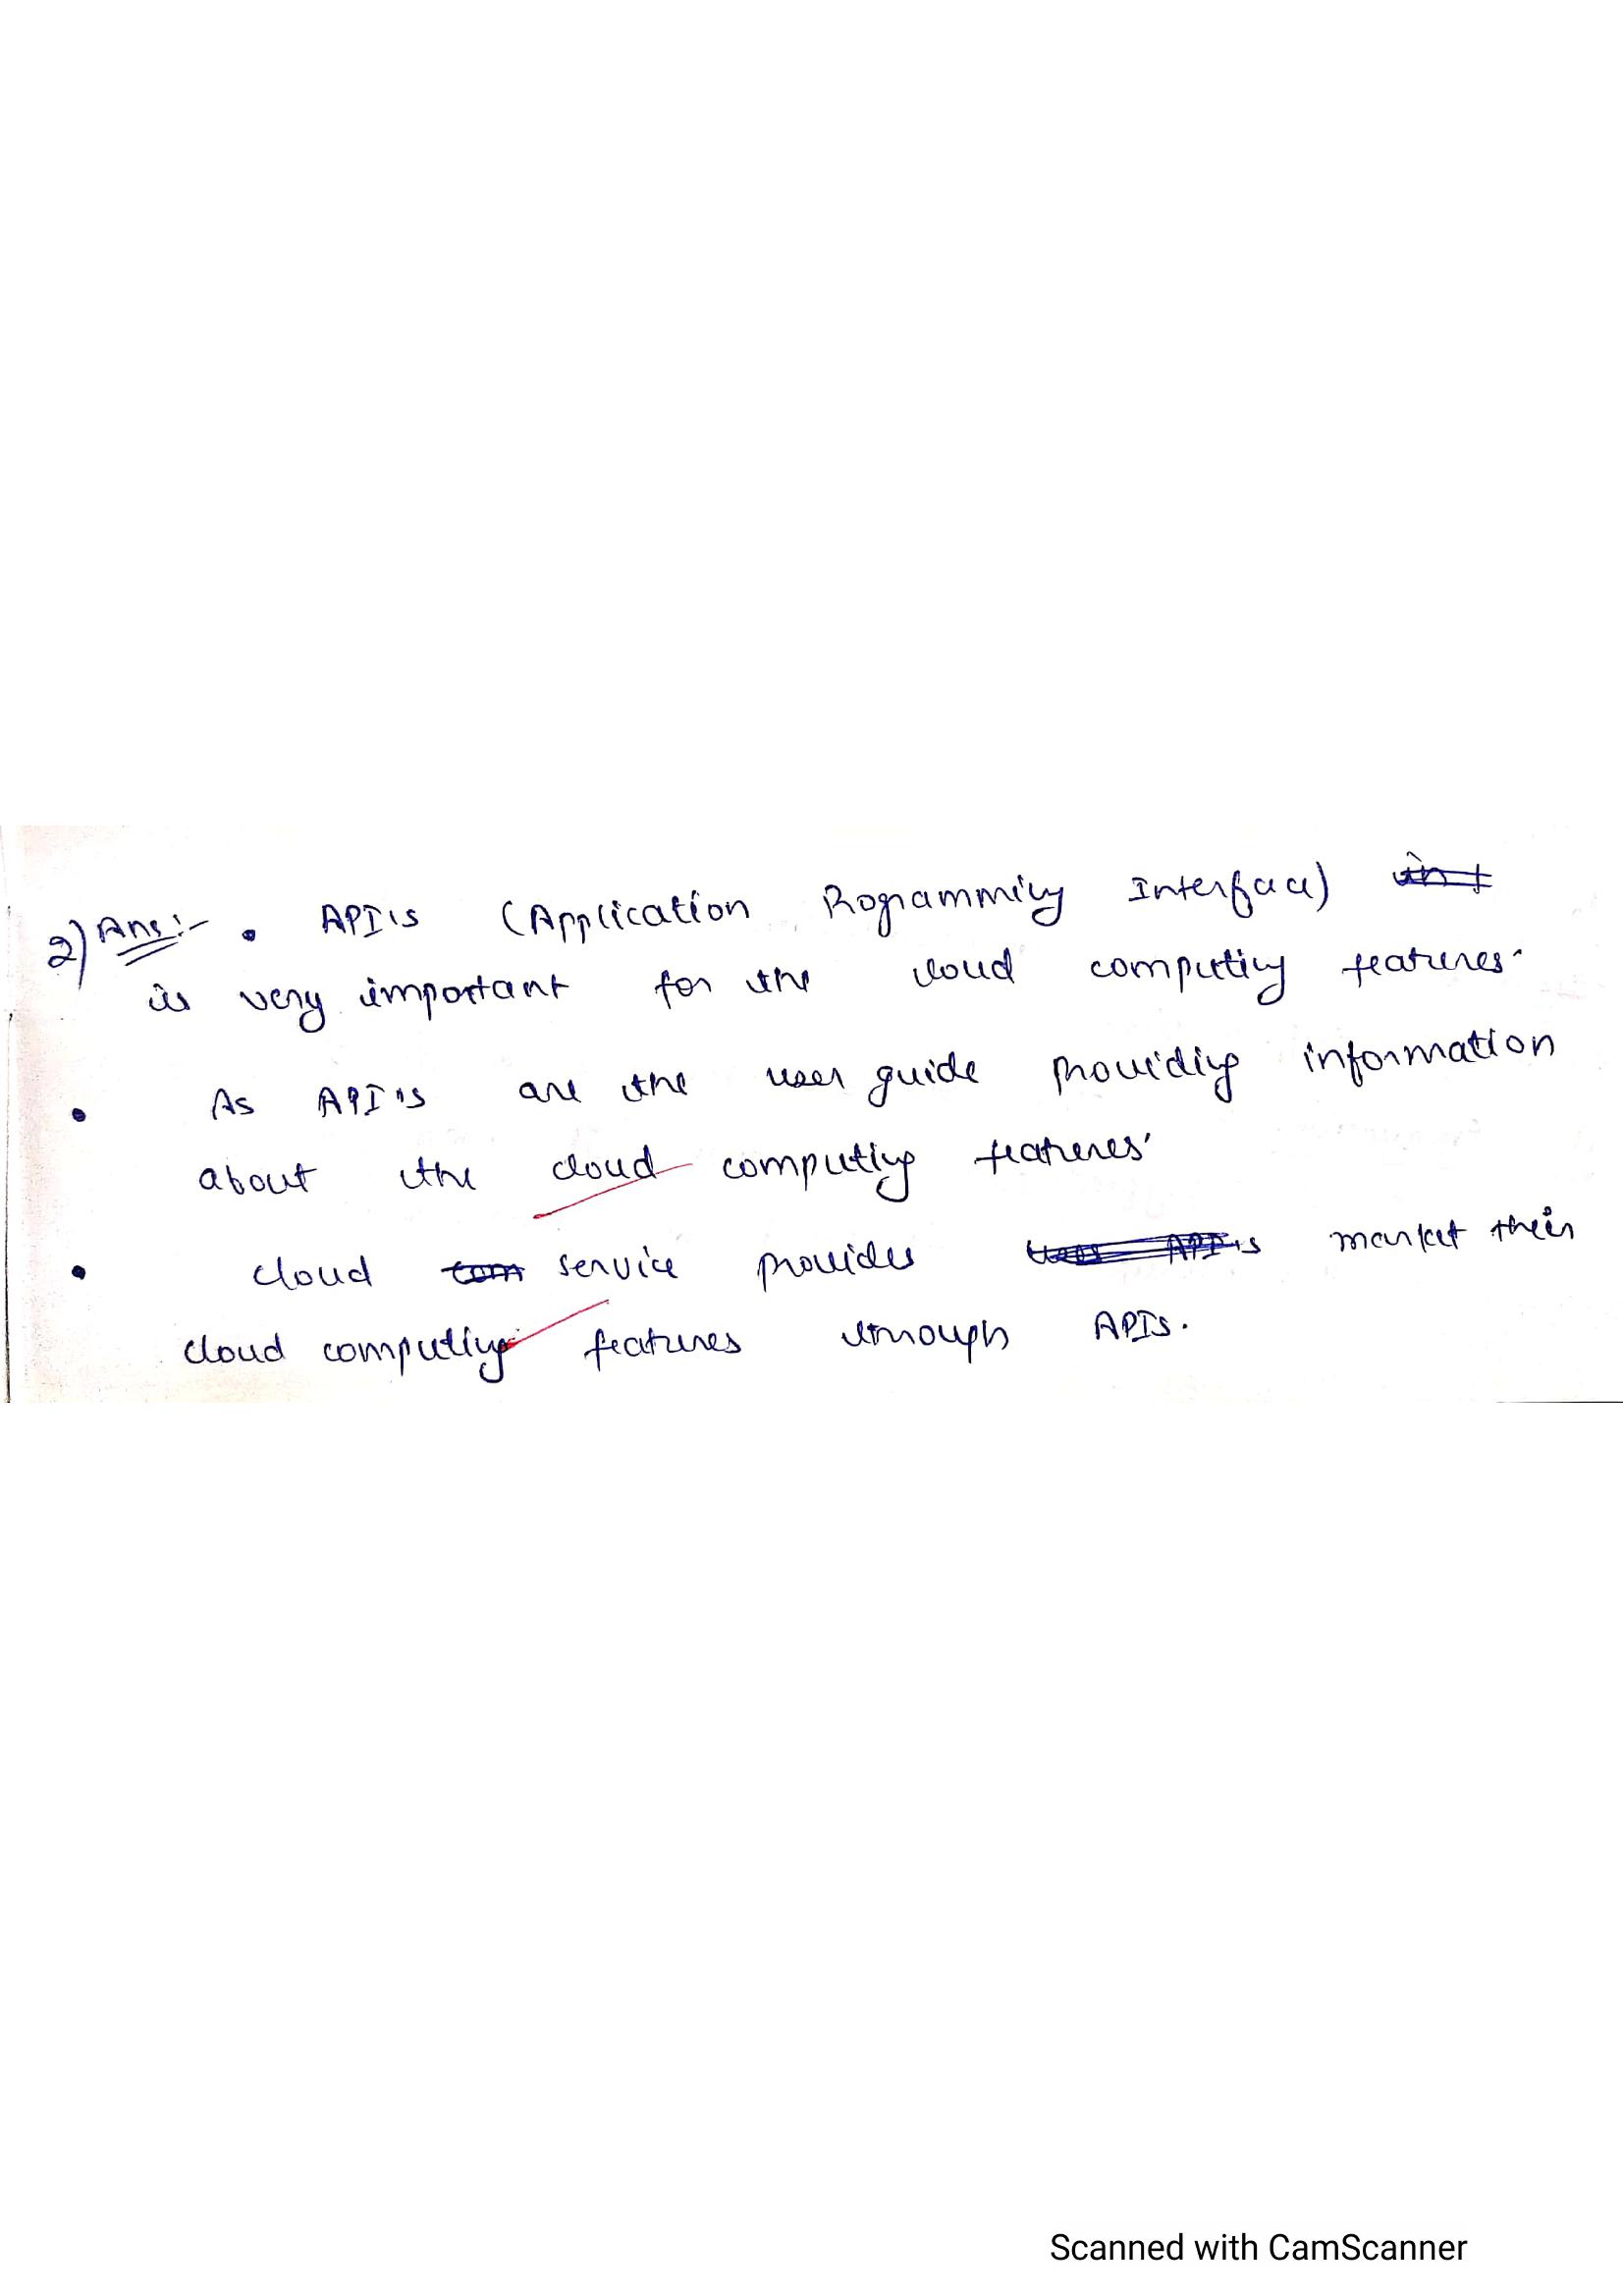 2) Ans:- • API's (Application Programming Interface)
is very important for the cloud computing features.
• As API's are the user guide providing information
about the cloud computing features.
• cloud service provides market their
cloud computing features through APIs.
Scanned with CamScanner